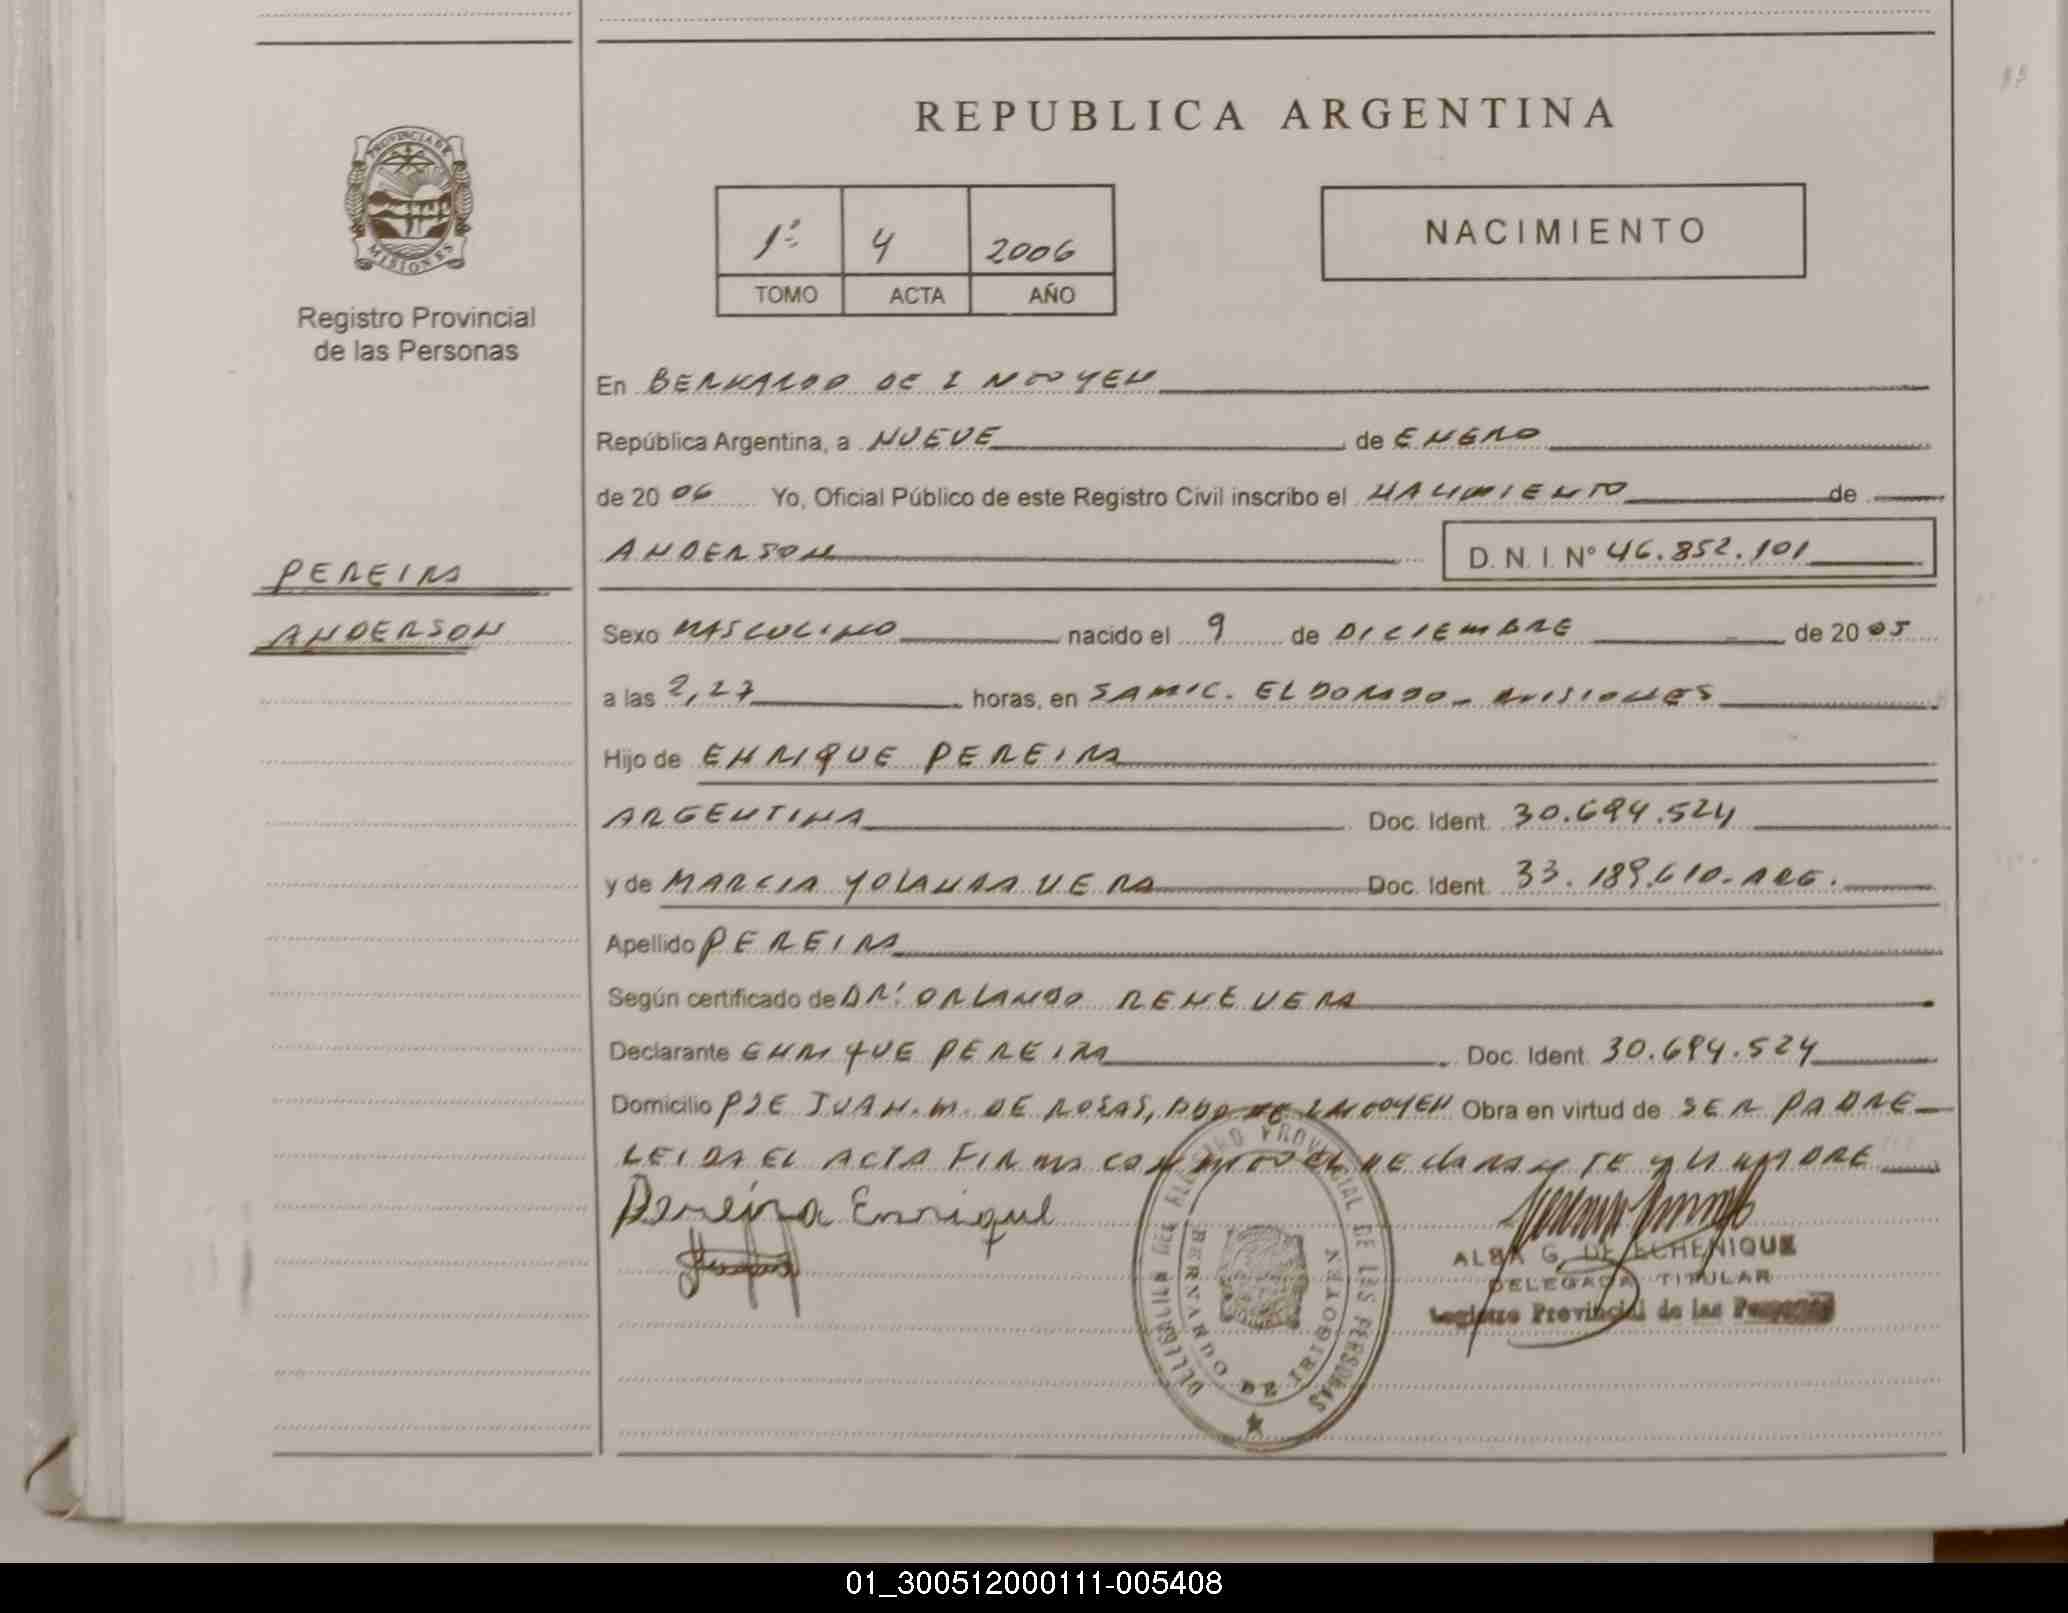 REPUBLICA ARGENTINA
PROVINCIA DE
MISIONES
Registro Provincial
de las Personas
1º 4 2006
TOMO ACTA AÑO
NACIMIENTO
En BERNARDO DE IRIGOYEN
República Argentina, a NUEVE de ENERO
de 20 06 Yo, Oficial Público de este Registro Civil inscribo el NACIMIENTO de
ANDERSON D. N. I. Nº 46.852.101
PEREIRA
ANDERSON
Sexo MASCULINO nacido el 9 de DICIEMBRE de 20 05
a las 2,27 horas, en SAMIC. ELDORADO - MISIONES
Hijo de ENRIQUE PEREIRA
ARGENTINA Doc. Ident. 30.694.524
y de MARCIA YOLANDA VERA Doc. Ident. 33.189.610- ARG.
Apellido PEREIRA
Según certificado de DR. ORLANDO RENE VERA
Declarante ENRIQUE PEREIRA Doc. Ident. 30.694.524
Domicilio PJE JUAN. M. DE ROSAS, BDO DE IRIGOYEN Obra en virtud de SER PADRE
LEIDA EL ACTA FIRMA CONMIGO EL DECLARANTE Y LA MADRE
Pereira Enrique
DELEGACION DEL REGISTRO PROVINCIAL DE LAS PERSONAS
BERNARDO DE IRIGOYEN
ALBA G. DE ECHENIQUE
DELEGADA TITULAR
Registro Provincial de las Personas
01_300512000111-005408